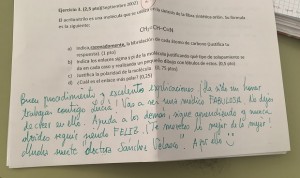 Ejercicio 3. (2,5 pto)(septiembre 2020)
El acrilonitrilo es una molécula que se utiliza en la síntesis de la fibra sintética orlón. Su fórmula
es la siguiente:
CH₂=CH-C≡N
a) Indica, razonadamente, la hibridación de cada átomo de carbono (justifica la
respuesta). (1 pto)
b) Indica los enlaces sigma y pi de la molécula justificando qué tipo de solapamiento se
da en cada caso y realizando un pequeño dibujo con lóbulos de estos. (0,5 pto)
c) Justifica la polaridad de la molécula. (0,75 pto)
d) ¿Cuál es el enlace más polar? (0,25)
Buen procedimiento y excelentes explicaciones. ¡Ha sido un honor
trabajar contigo, ! Vas a ser una médica FABULOSA. No dejes
de creer en ello. Ayuda a los demás, sigue aprendiendo y nunca
olvides seguir siendo FELIZ. ¡Te mereces lo mejor de lo mejor!
¡Mucha suerte "doctora Sánchez Velasco". A por ello